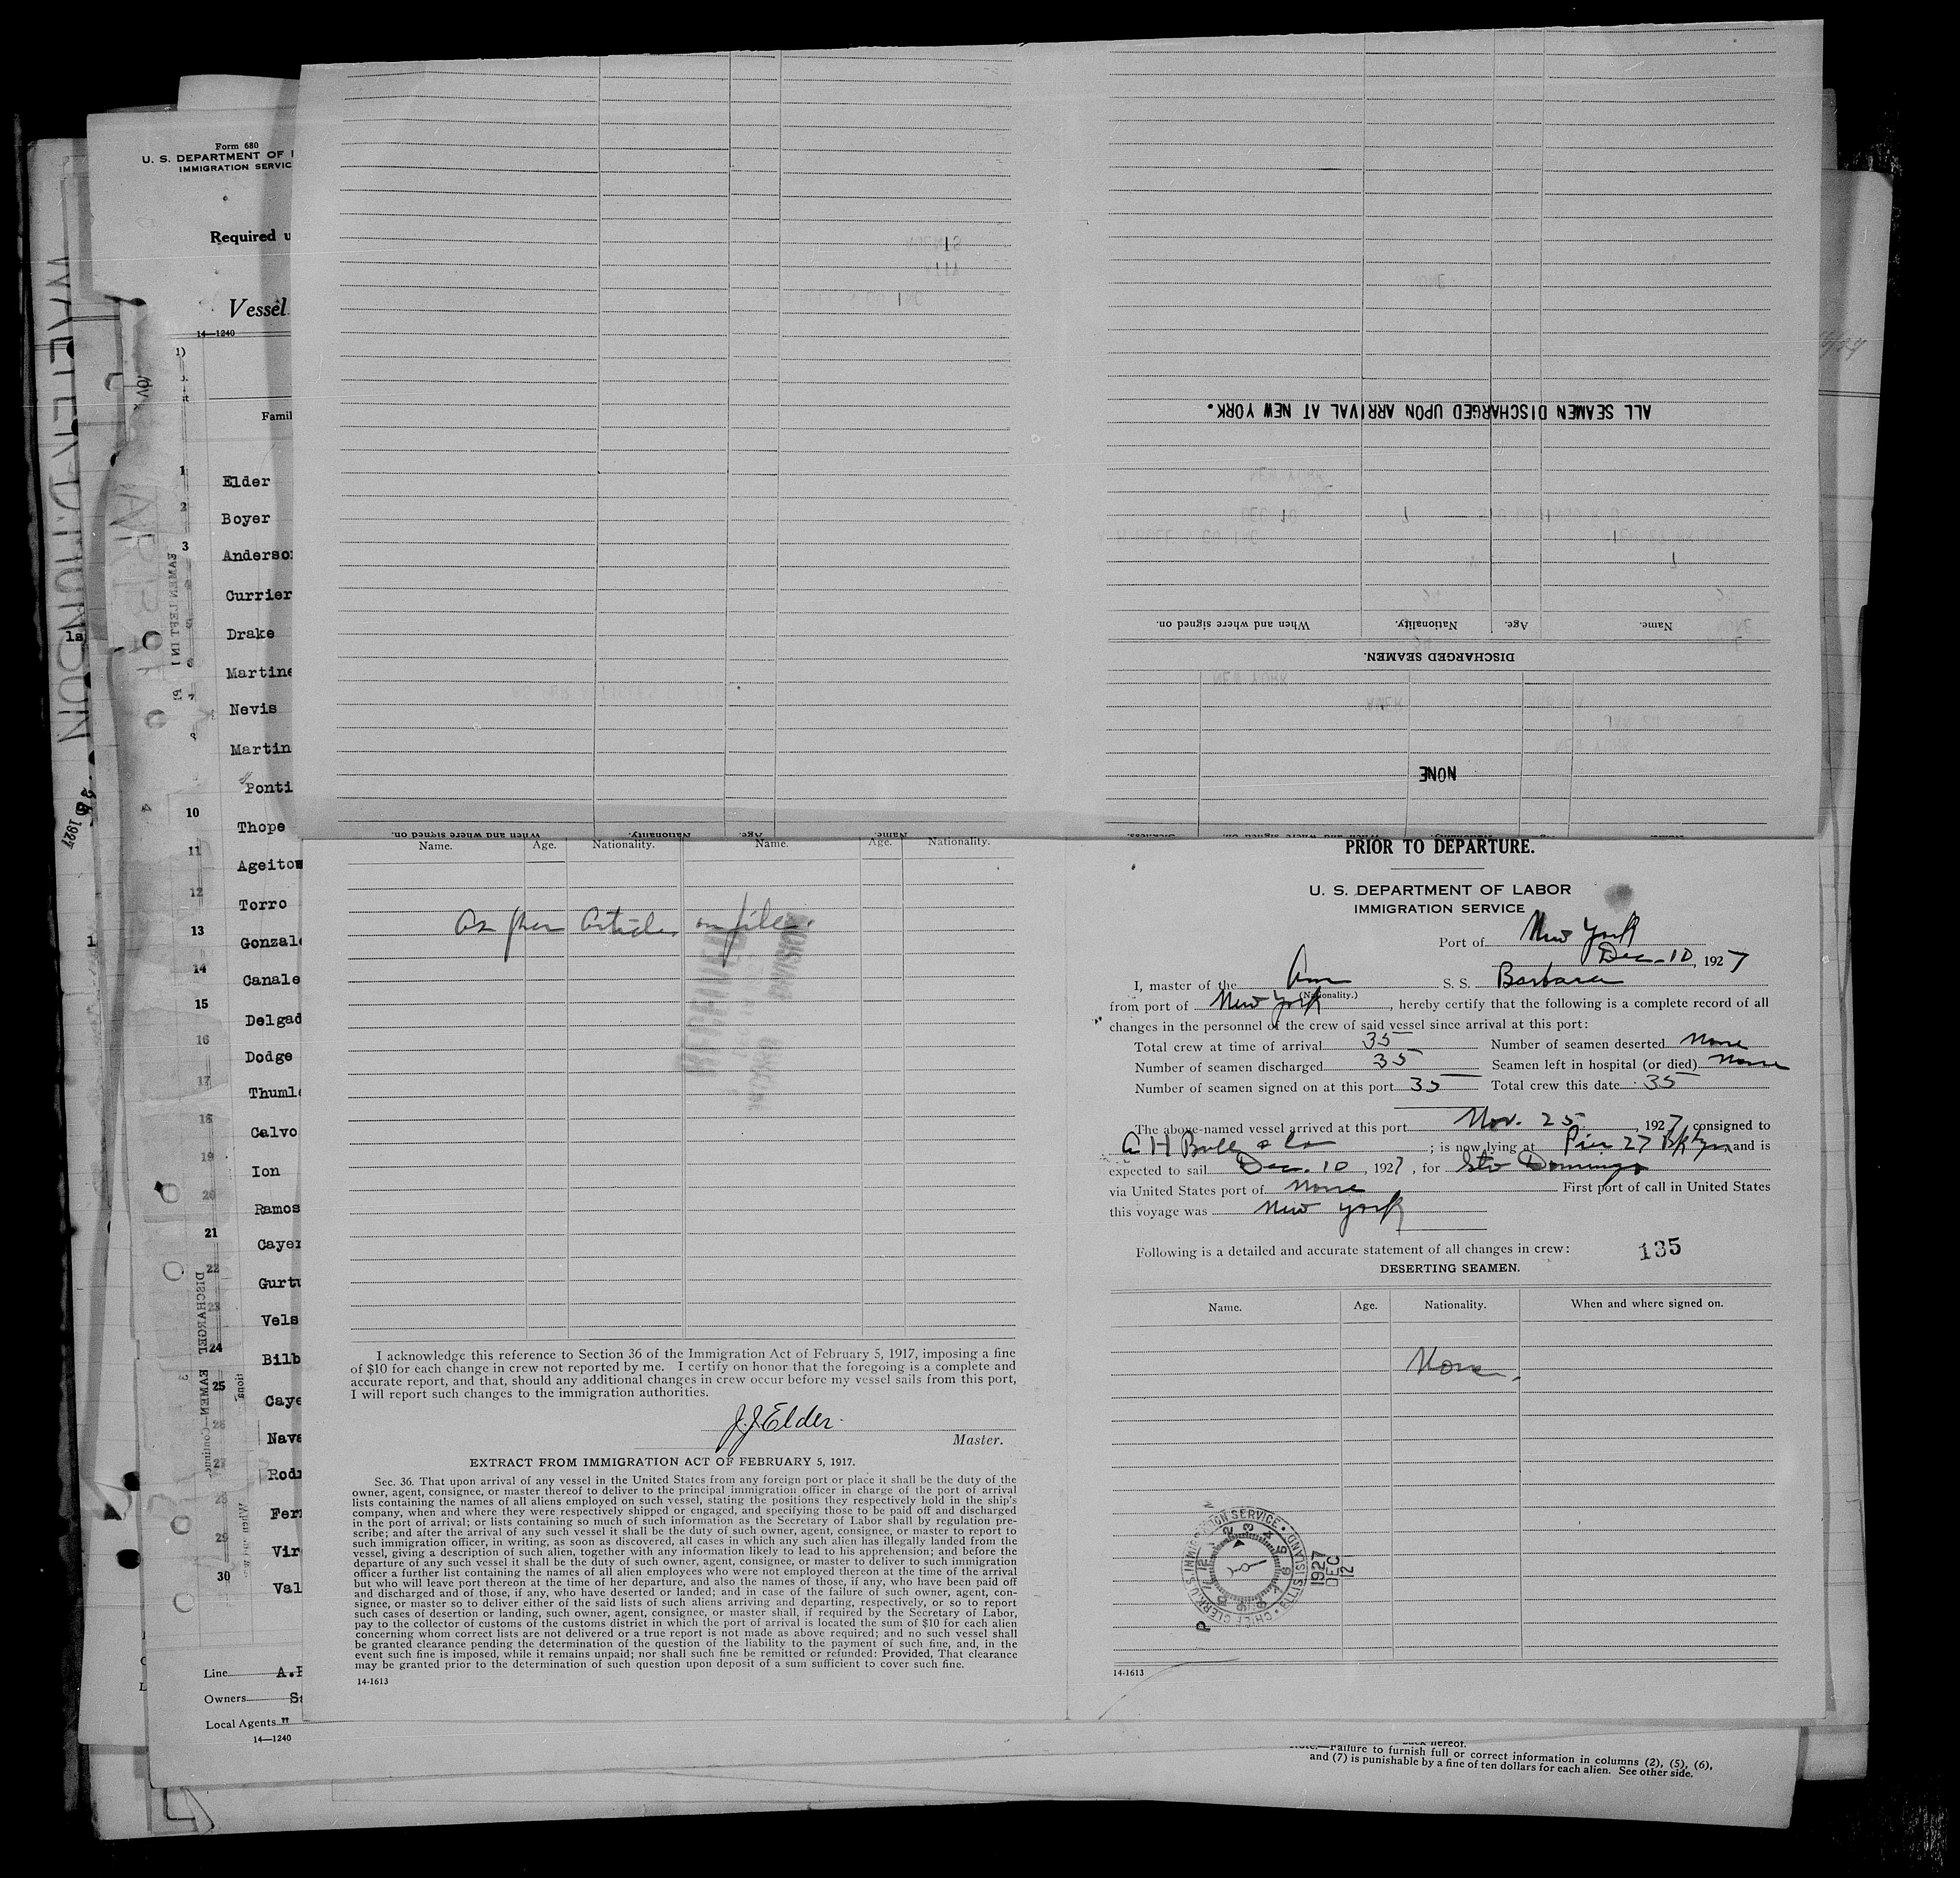 Form 680
U. S. DEPARTMENT OF
IMMIGRATION SERVIC
Required u
Vessel
14—1240
Famil
1 Elder
2 Boyer
3 Anderso
Currier
Drake
Martine
Nevis
Martin
Ponti
10 Thope
11 Ageitos
12 Torro
13 Gonzale
14 Canale
15 Delgad
16 Dodge
17 Thuml
18 Calvo
19 Ion
20 Ramos
21 Cayer
22 Gurtu
23 Vels
24 Bilb
25 Caye
26 Nava
27 Rodr
28 Fer
29 Vir
30 Val
Line A.
Owners S
Local Agents "
14—1240
ALL SEAMEN DISCHARGED UPON ARRIVAL AT NEW YORK.
Name. Age. Nationality. When and where signed on.
DISCHARGED SEAMEN.
NONE
Name. Age. Nationality. When and where signed on.
Name. Age. Nationality. Name. Age. Nationality.
As per Articles on file.
I acknowledge this reference to Section 36 of the Immigration Act of February 5, 1917, imposing a fine
of $10 for each change in crew not reported by me. I certify on honor that the foregoing is a complete and
accurate report, and that, should any additional changes in crew occur before my vessel sails from this port,
I will report such changes to the immigration authorities.
J. J. Elder
Master.
EXTRACT FROM IMMIGRATION ACT OF FEBRUARY 5, 1917.
Sec. 36. That upon arrival of any vessel in the United States from any foreign port or place it shall be the duty of the
owner, agent, consignee, or master thereof to deliver to the principal immigration officer in charge of the port of arrival
lists containing the names of all aliens employed on such vessel, stating the positions they respectively hold in the ship's
company, when and where they were respectively shipped or engaged, and specifying those to be paid off and discharged
in the port of arrival; or lists containing so much of such information as the Secretary of Labor shall by regulation pre-
scribe; and after the arrival of any such vessel it shall be the duty of such owner, agent, consignee, or master to report to
such immigration officer, in writing, as soon as discovered, all cases in which any such alien has illegally landed from the
vessel, giving a description of such alien, together with any information likely to lead to his apprehension; and before the
departure of any such vessel it shall be the duty of such owner, agent, consignee, or master to deliver to such immigration
officer a further list containing the names of all alien employees who were not employed thereon at the time of the arrival
but who will leave port thereon at the time of her departure, and also the names of those, if any, who have been paid off
and discharged and of those, if any, who have deserted or landed; and in case of the failure of such owner, agent, con-
signee, or master so to deliver either of the said lists of such aliens arriving and departing, respectively, or so to report
such cases of desertion or landing, such owner, agent, consignee, or master shall, if required by the Secretary of Labor,
pay to the collector of customs of the customs district in which the port of arrival is located the sum of $10 for each alien
concerning whom correct lists are not delivered or a true report is not made as above required; and no such vessel shall
be granted clearance pending the determination of the question of the liability to the payment of such fine, and, in the
event such fine is imposed, while it remains unpaid; nor shall such fine be remitted or refunded: Provided, That clearance
may be granted prior to the determination of such question upon deposit of a sum sufficient to cover such fine.
14-1613
PRIOR TO DEPARTURE.
U. S. DEPARTMENT OF LABOR
IMMIGRATION SERVICE
Port of New York
Dec. 10, 1927
I, master of the Am S. S. Barbara
(Nationality.)
from port of New York, hereby certify that the following is a complete record of all
changes in the personnel of the crew of said vessel since arrival at this port:
Total crew at time of arrival 35 Number of seamen deserted None
Number of seamen discharged 35 Seamen left in hospital (or died) None
Number of seamen signed on at this port 35 Total crew this date 35
The above-named vessel arrived at this port Nov. 25, 1927, consigned to
A H Bull & Co; is now lying at Pier 27 Bklyn and is
expected to sail Dec. 10, 1927, for Sto Domingo
via United States port of None First port of call in United States
this voyage was New York
Following is a detailed and accurate statement of all changes in crew: 135
DESERTING SEAMEN.
Name. Age. Nationality. When and where signed on.
None.
U.S. IMMIGRATION SERVICE • ELLIS ISLAND • CHIEF CLERK
1927
DEC
12
14-1613
Note.—Failure to furnish full or correct information in columns (2), (5), (6),
and (7) is punishable by a fine of ten dollars for each alien. See other side.